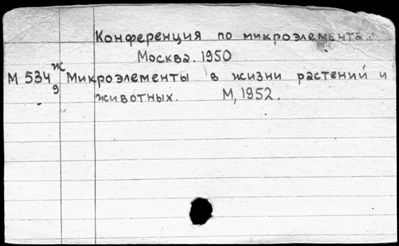 Конференция по микроэлемента.
Москва. 1950
М 534 ж/9 Микроэлементы в жизни растений и
животных. М, 1952.